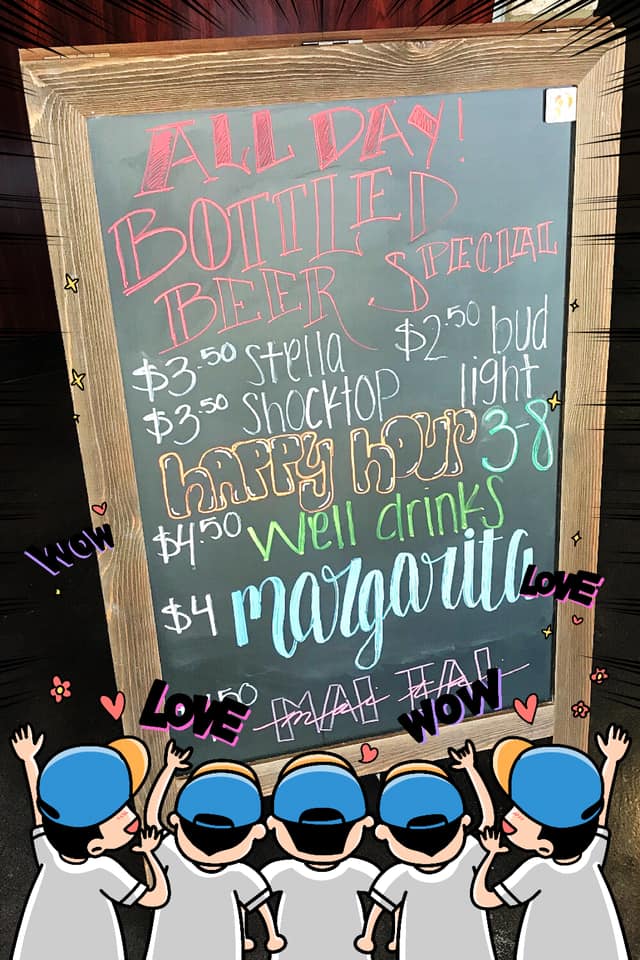 ALL DAY!
BOTTLED
BEER SPECIAL
$3.50 stella $2.50 bud
light
$3.50 shocktop
happy hour 3-8
$4.50 well drinks
$4 margarita
.50 MAI TAI
WOW
LOVE
LOVE
WOW